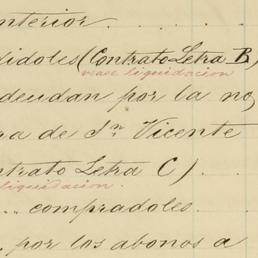 interior
didoles (Contrato Letra B)
vease liquidacion
deudan por la no,
ra de Sn Vicente
trato Letra C).
liquidacion.
... compradoles
... por los abonos a